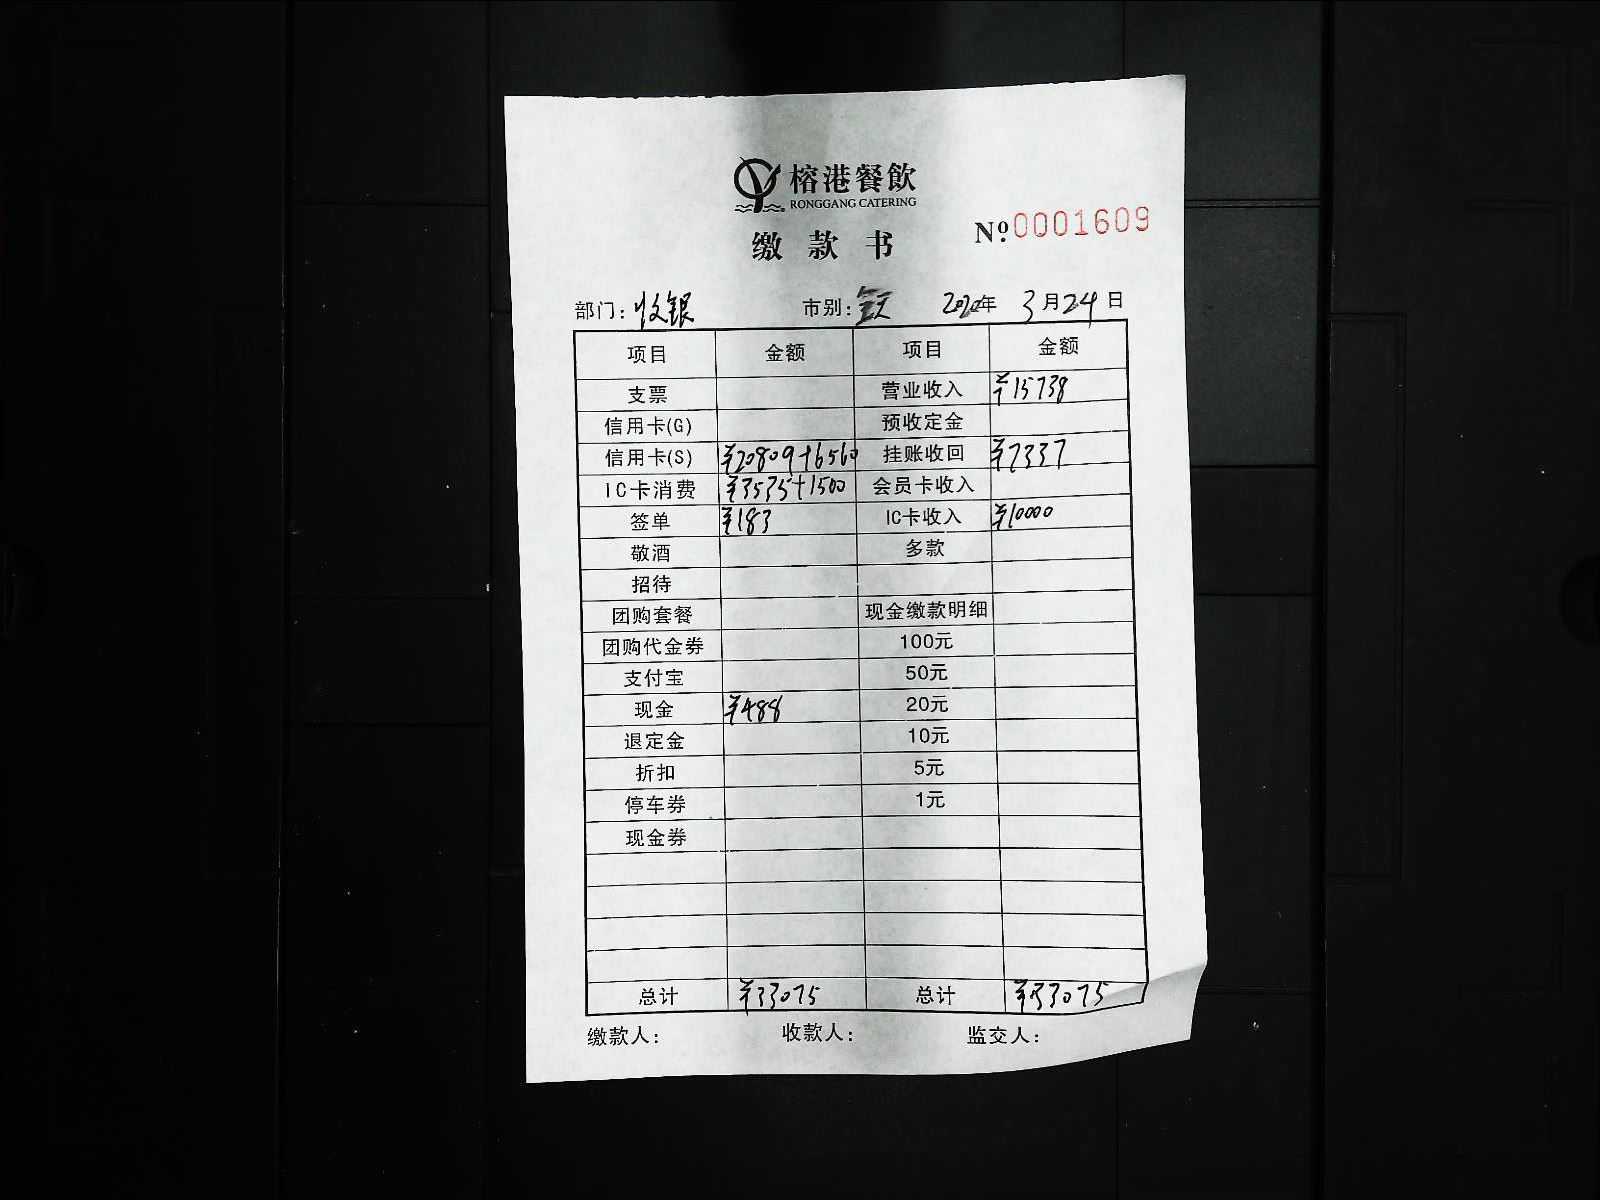 榕港餐飲
RONGGANG CATERING
缴款书
№0001609
部门：收银 市别：全天 2020年 3月24日
项目 金额 项目 金额
支票 营业收入 ¥15738
信用卡(G) 预收定金
信用卡(S) ¥20809+6560 挂账收回 ¥7337
IC卡消费 ¥3535+1500 会员卡收入
签单 ¥183 IC卡收入 ¥10000
敬酒 多款
招待
团购套餐 现金缴款明细
团购代金券 100元
支付宝 50元
现金 ¥488 20元
退定金 10元
折扣 5元
停车券 1元
现金券
总计 ¥33075 总计 ¥33075
缴款人： 收款人： 监交人：